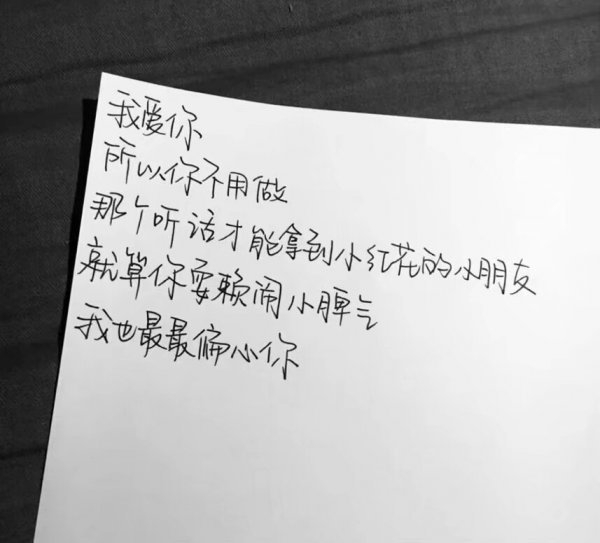 我爱你
所以你不用做
那个听话才能拿到小红花的小朋友
就算你耍赖闹小脾气
我也最最偏心你